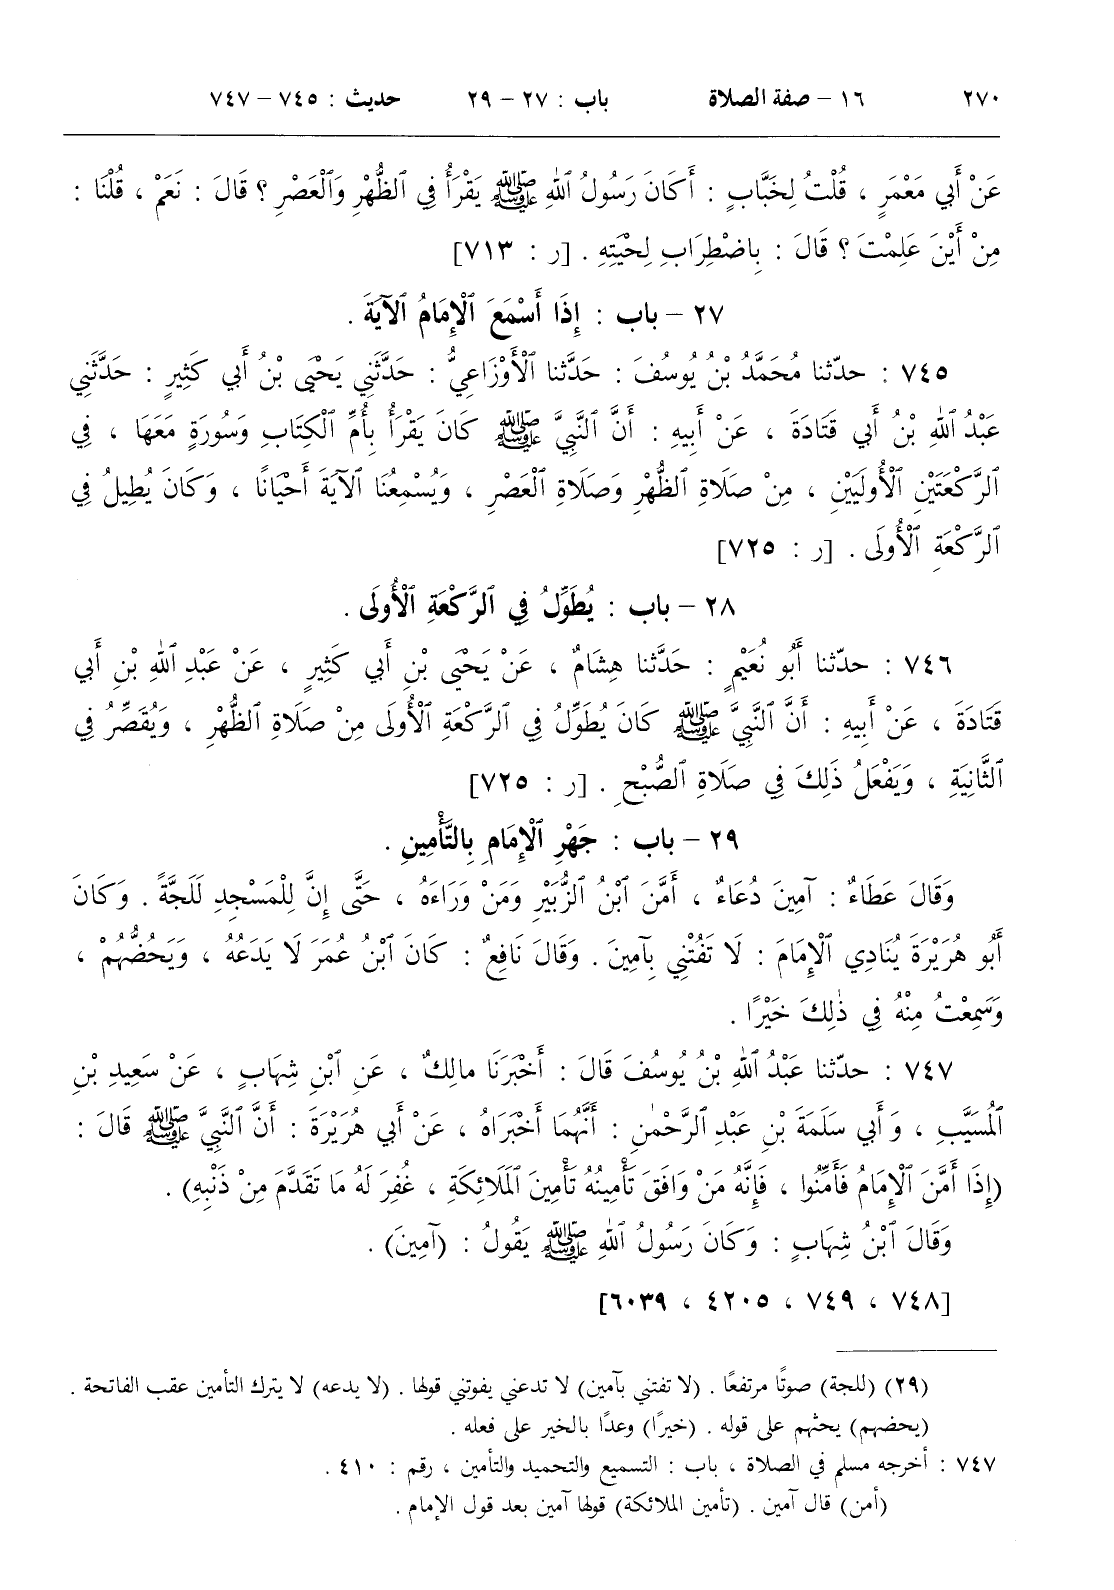 ٢٧٠ ١٦ – صفة الصلاة باب : ٢٧ – ٢٩ حديث : ٧٤٥ – ٧٤٧
عَنْ أَبِي مَعْمَرٍ ، قُلْتُ لِخَبَّابٍ : أَكَانَ رَسُولُ ٱللهِ ﷺ يَقْرَأُ فِي ٱلظُّهْرِ وَٱلْعَصْرِ ؟ قَالَ : نَعَمْ ، قُلْنَا :
مِنْ أَيْنَ عَلِمْتَ ؟ قَالَ : بِاضْطِرَابِ لِحْيَتِهِ . [ر : ٧١٣]
٢٧ – باب : إِذَا أَسْمَعَ ٱلْإِمَامُ ٱلْآيَةَ .
٧٤٥ : حدّثنا مُحَمَّدُ بْنُ يُوسُفَ : حَدَّثنا ٱلْأَوْزَاعِيُّ : حَدَّثَنِي يَحْيَى بْنُ أَبِي كَثِيرٍ : حَدَّثَنِي
عَبْدُ ٱللهِ بْنُ أَبِي قَتَادَةَ ، عَنْ أَبِيهِ : أَنَّ ٱلنَّبِيَّ ﷺ كَانَ يَقْرَأُ بِأُمِّ ٱلْكِتَابِ وَسُورَةٍ مَعَهَا ، فِي
ٱلرَّكْعَتَيْنِ ٱلْأُولَيَيْنِ ، مِنْ صَلَاةِ ٱلظُّهْرِ وَصَلَاةِ ٱلْعَصْرِ ، وَيُسْمِعُنَا ٱلْآيَةَ أَحْيَانًا ، وَكَانَ يُطِيلُ فِي
ٱلرَّكْعَةِ ٱلْأُولَى . [ر : ٧٢٥]
٢٨ – باب : يُطَوِّلُ فِي ٱلرَّكْعَةِ ٱلْأُولَى .
٧٤٦ : حدّثنا أَبُو نُعَيْمٍ : حَدَّثنا هِشَامٌ ، عَنْ يَحْيَى بْنِ أَبِي كَثِيرٍ ، عَنْ عَبْدِ ٱللهِ بْنِ أَبِي
قَتَادَةَ ، عَنْ أَبِيهِ : أَنَّ ٱلنَّبِيَّ ﷺ كَانَ يُطَوِّلُ فِي ٱلرَّكْعَةِ ٱلْأُولَى مِنْ صَلَاةِ ٱلظُّهْرِ ، وَيُقَصِّرُ فِي
ٱلثَّانِيَةِ ، وَيَفْعَلُ ذَلِكَ فِي صَلَاةِ ٱلصُّبْحِ . [ر : ٧٢٥]
٢٩ – باب : جَهْرِ ٱلْإِمَامِ بِالتَّأْمِينِ .
وَقَالَ عَطَاءٌ : آمِينَ دُعَاءٌ ، أَمَّنَ ٱبْنُ ٱلزُّبَيْرِ وَمَنْ وَرَاءَهُ ، حَتَّى إِنَّ لِلْمَسْجِدِ لَلَجَّةً . وَكَانَ
أَبُو هُرَيْرَةَ يُنَادِي ٱلْإِمَامَ : لَا تَفُتْنِي بِآمِينَ . وَقَالَ نَافِعٌ : كَانَ ٱبْنُ عُمَرَ لَا يَدَعُهُ ، وَيَحُضُّهُمْ ،
وَسَمِعْتُ مِنْهُ فِي ذٰلِكَ خَيْرًا .
٧٤٧ : حدّثنا عَبْدُ ٱللهِ بْنُ يُوسُفَ قَالَ : أَخْبَرَنَا مالِكٌ ، عَنِ ٱبْنِ شِهَابٍ ، عَنْ سَعِيدِ بْنِ
ٱلْمُسَيَّبِ ، وَأَبِي سَلَمَةَ بْنِ عَبْدِ ٱلرَّحْمٰنِ : أَنَّهُمَا أَخْبَرَاهُ ، عَنْ أَبِي هُرَيْرَةَ : أَنَّ ٱلنَّبِيَّ ﷺ قَالَ :
(إِذَا أَمَّنَ ٱلْإِمَامُ فَأَمِّنُوا ، فَإِنَّهُ مَنْ وَافَقَ تَأْمِينُهُ تَأْمِينَ ٱلْمَلَائِكَةِ ، غُفِرَ لَهُ مَا تَقَدَّمَ مِنْ ذَنْبِهِ) .
وَقَالَ ٱبْنُ شِهَابٍ : وَكَانَ رَسُولُ ٱللهِ ﷺ يَقُولُ : (آمِينَ) .
[٧٤٨ ، ٧٤٩ ، ٤٢٠٥ ، ٦٠٣٩]
(٢٩) (للجة) صوتًا مرتفعًا . (لا تفتني بآمين) لا تدعني يفوتني قولها . (لا يدعه) لا يترك التأمين عقب الفاتحة .
(يحضهم) يحثهم على قوله . (خيرًا) وعدًا بالخير على فعله .
٧٤٧ : أخرجه مسلم في الصلاة ، باب : التسميع والتحميد والتأمين ، رقم : ٤١٠ .
(أمن) قال آمين . (تأمين الملائكة) قولها آمين بعد قول الإمام .